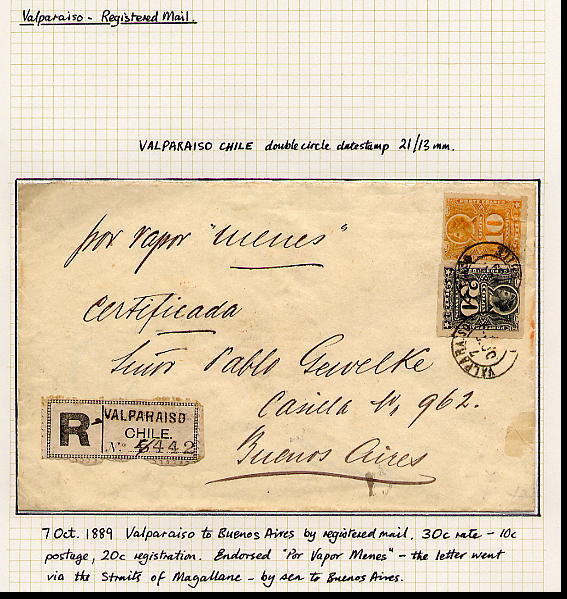 Valparaiso - Registered Mail.
VALPARAISO CHILE double circle datestamp 21/13 mm.
por vapor "Menes"
10
20
VALPARAISO
Certificada
Señor Pablo Gewelke
Casilla No. 962.
Buenos Aires
R
VALPARAISO
CHILE.
No 5442
7 Oct. 1889 Valparaiso to Buenos Aires by registered mail. 30c rate - 10c
postage, 20c registration. Endorsed "Por Vapor Menes" - the letter went
via the Straits of Magallane - by sea to Buenos Aires.